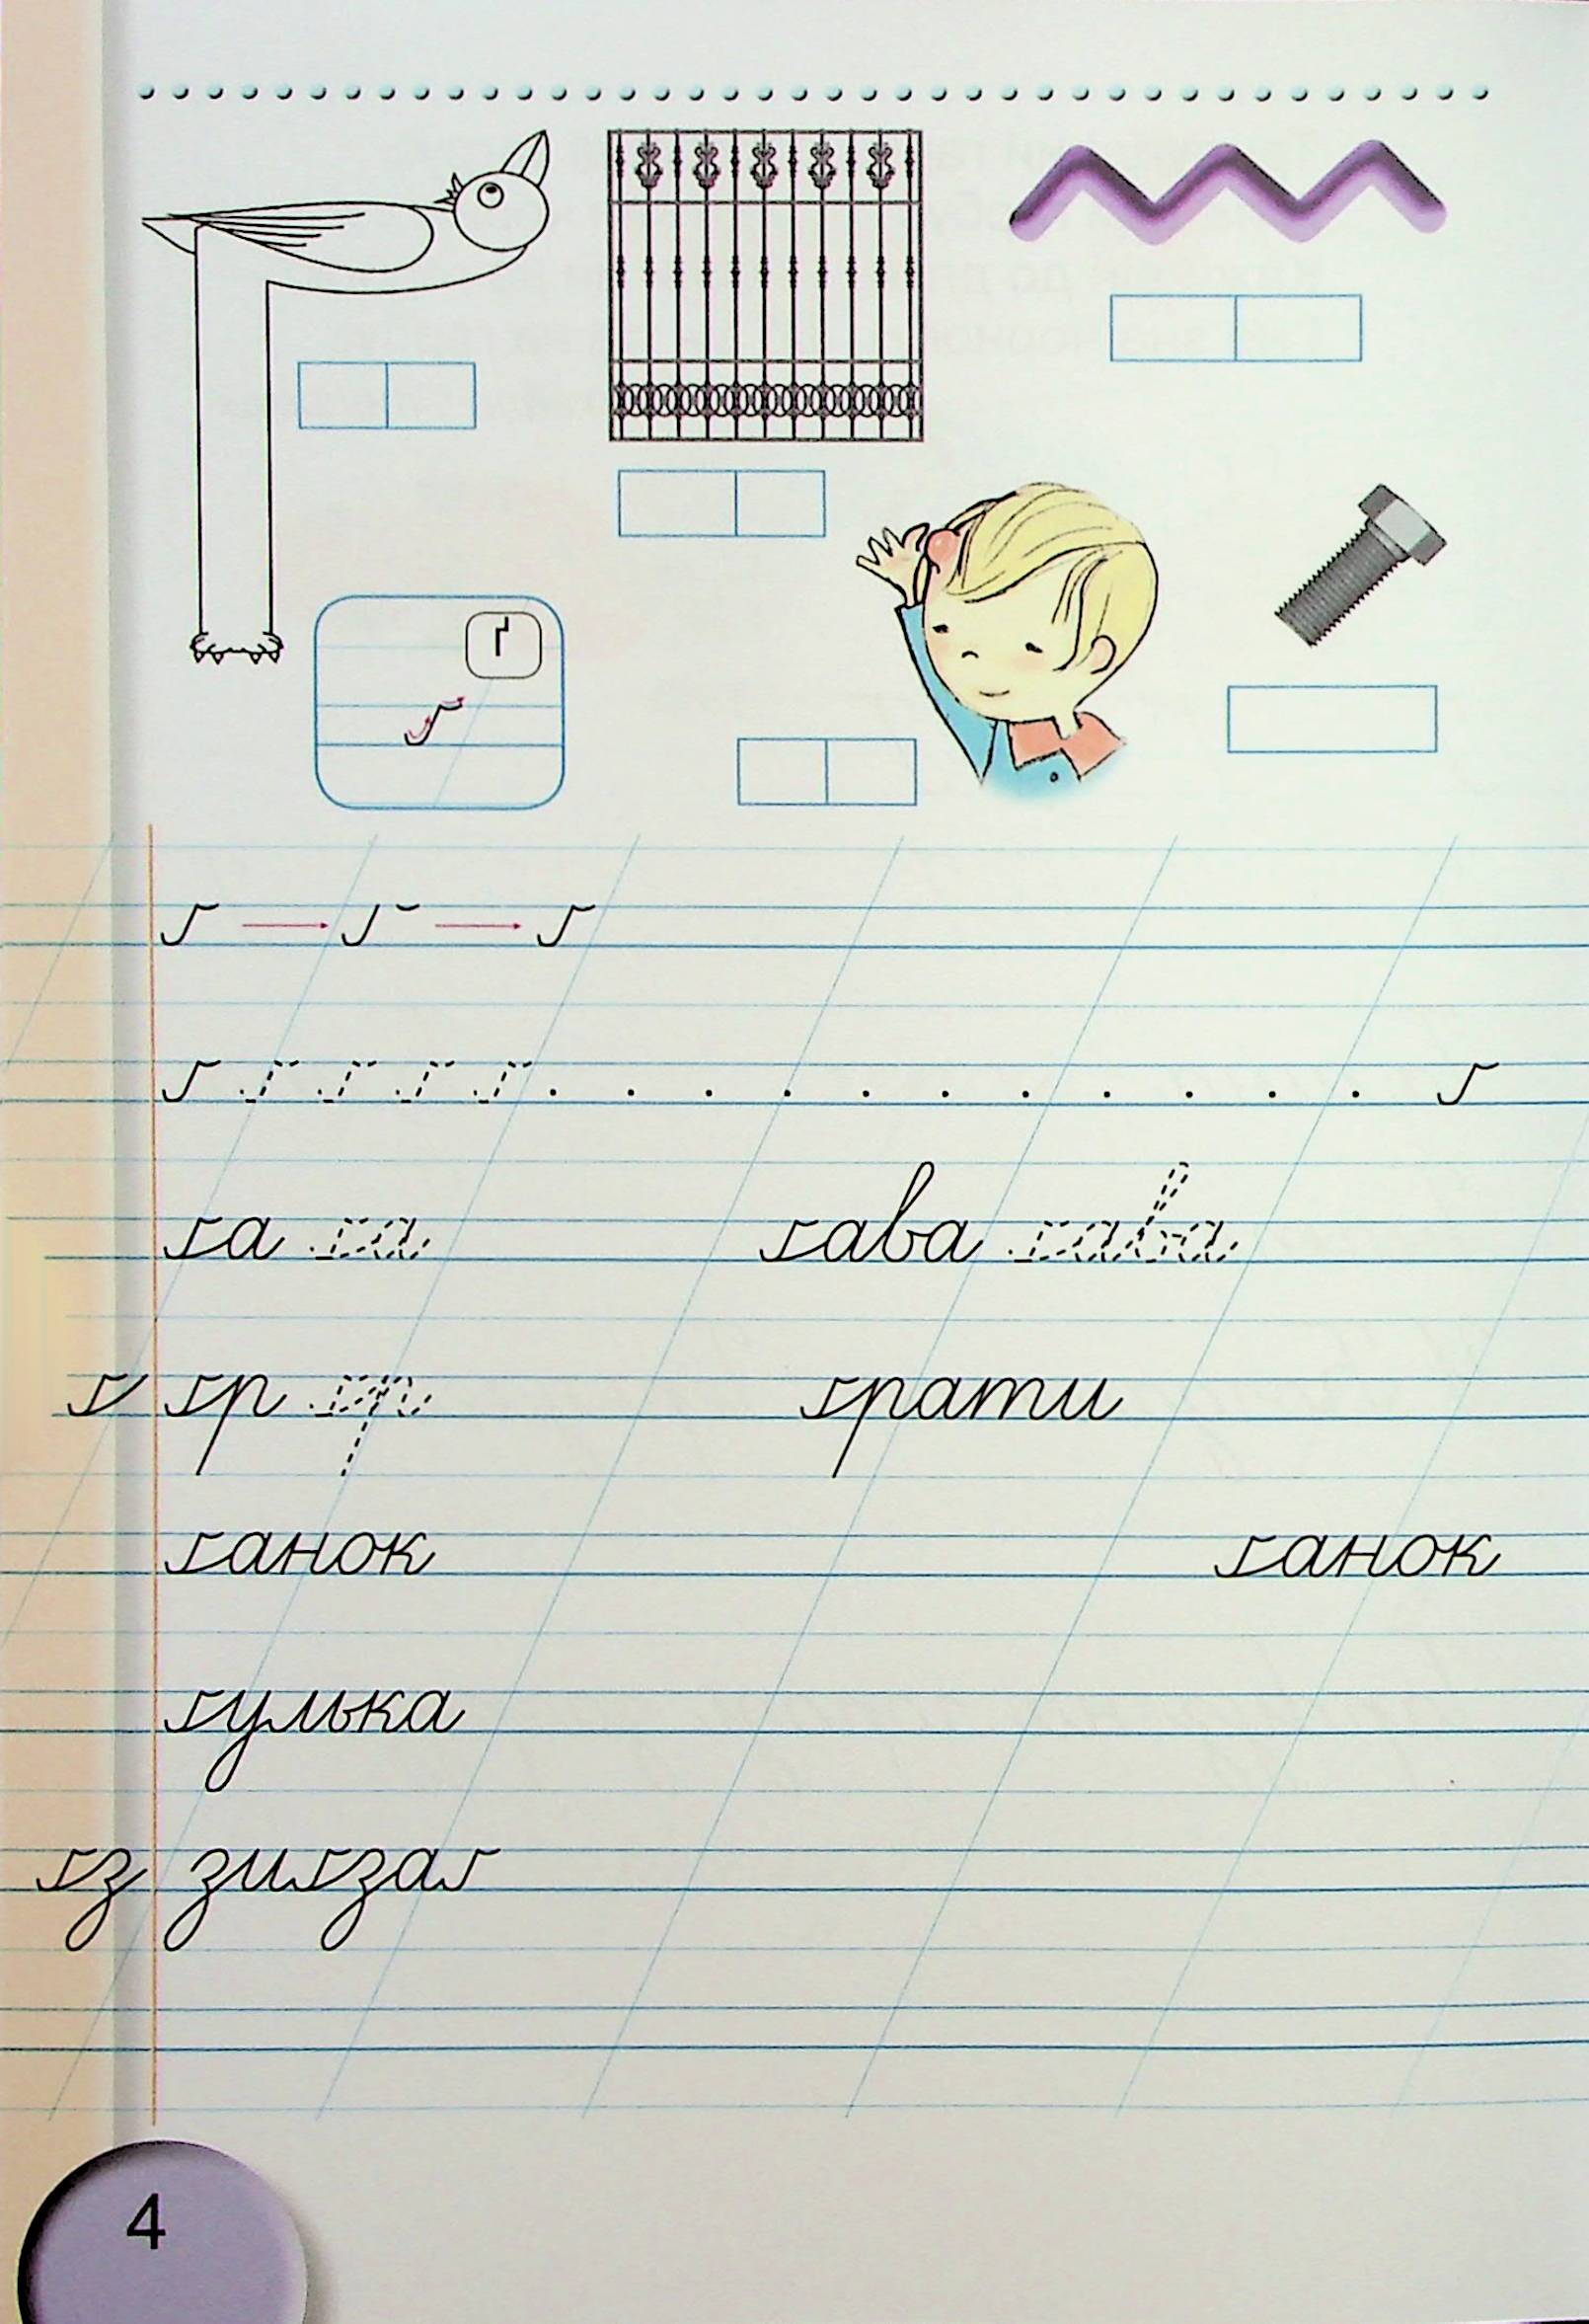 ґ
ґ
ґ ґ ґ
ґ ґ ґ ґ ґ ґ
ґа ґа ґава ґава
ґ ґр ґр ґрати
ґанок ґанок
ґулька
ґз зиґзаґ
4